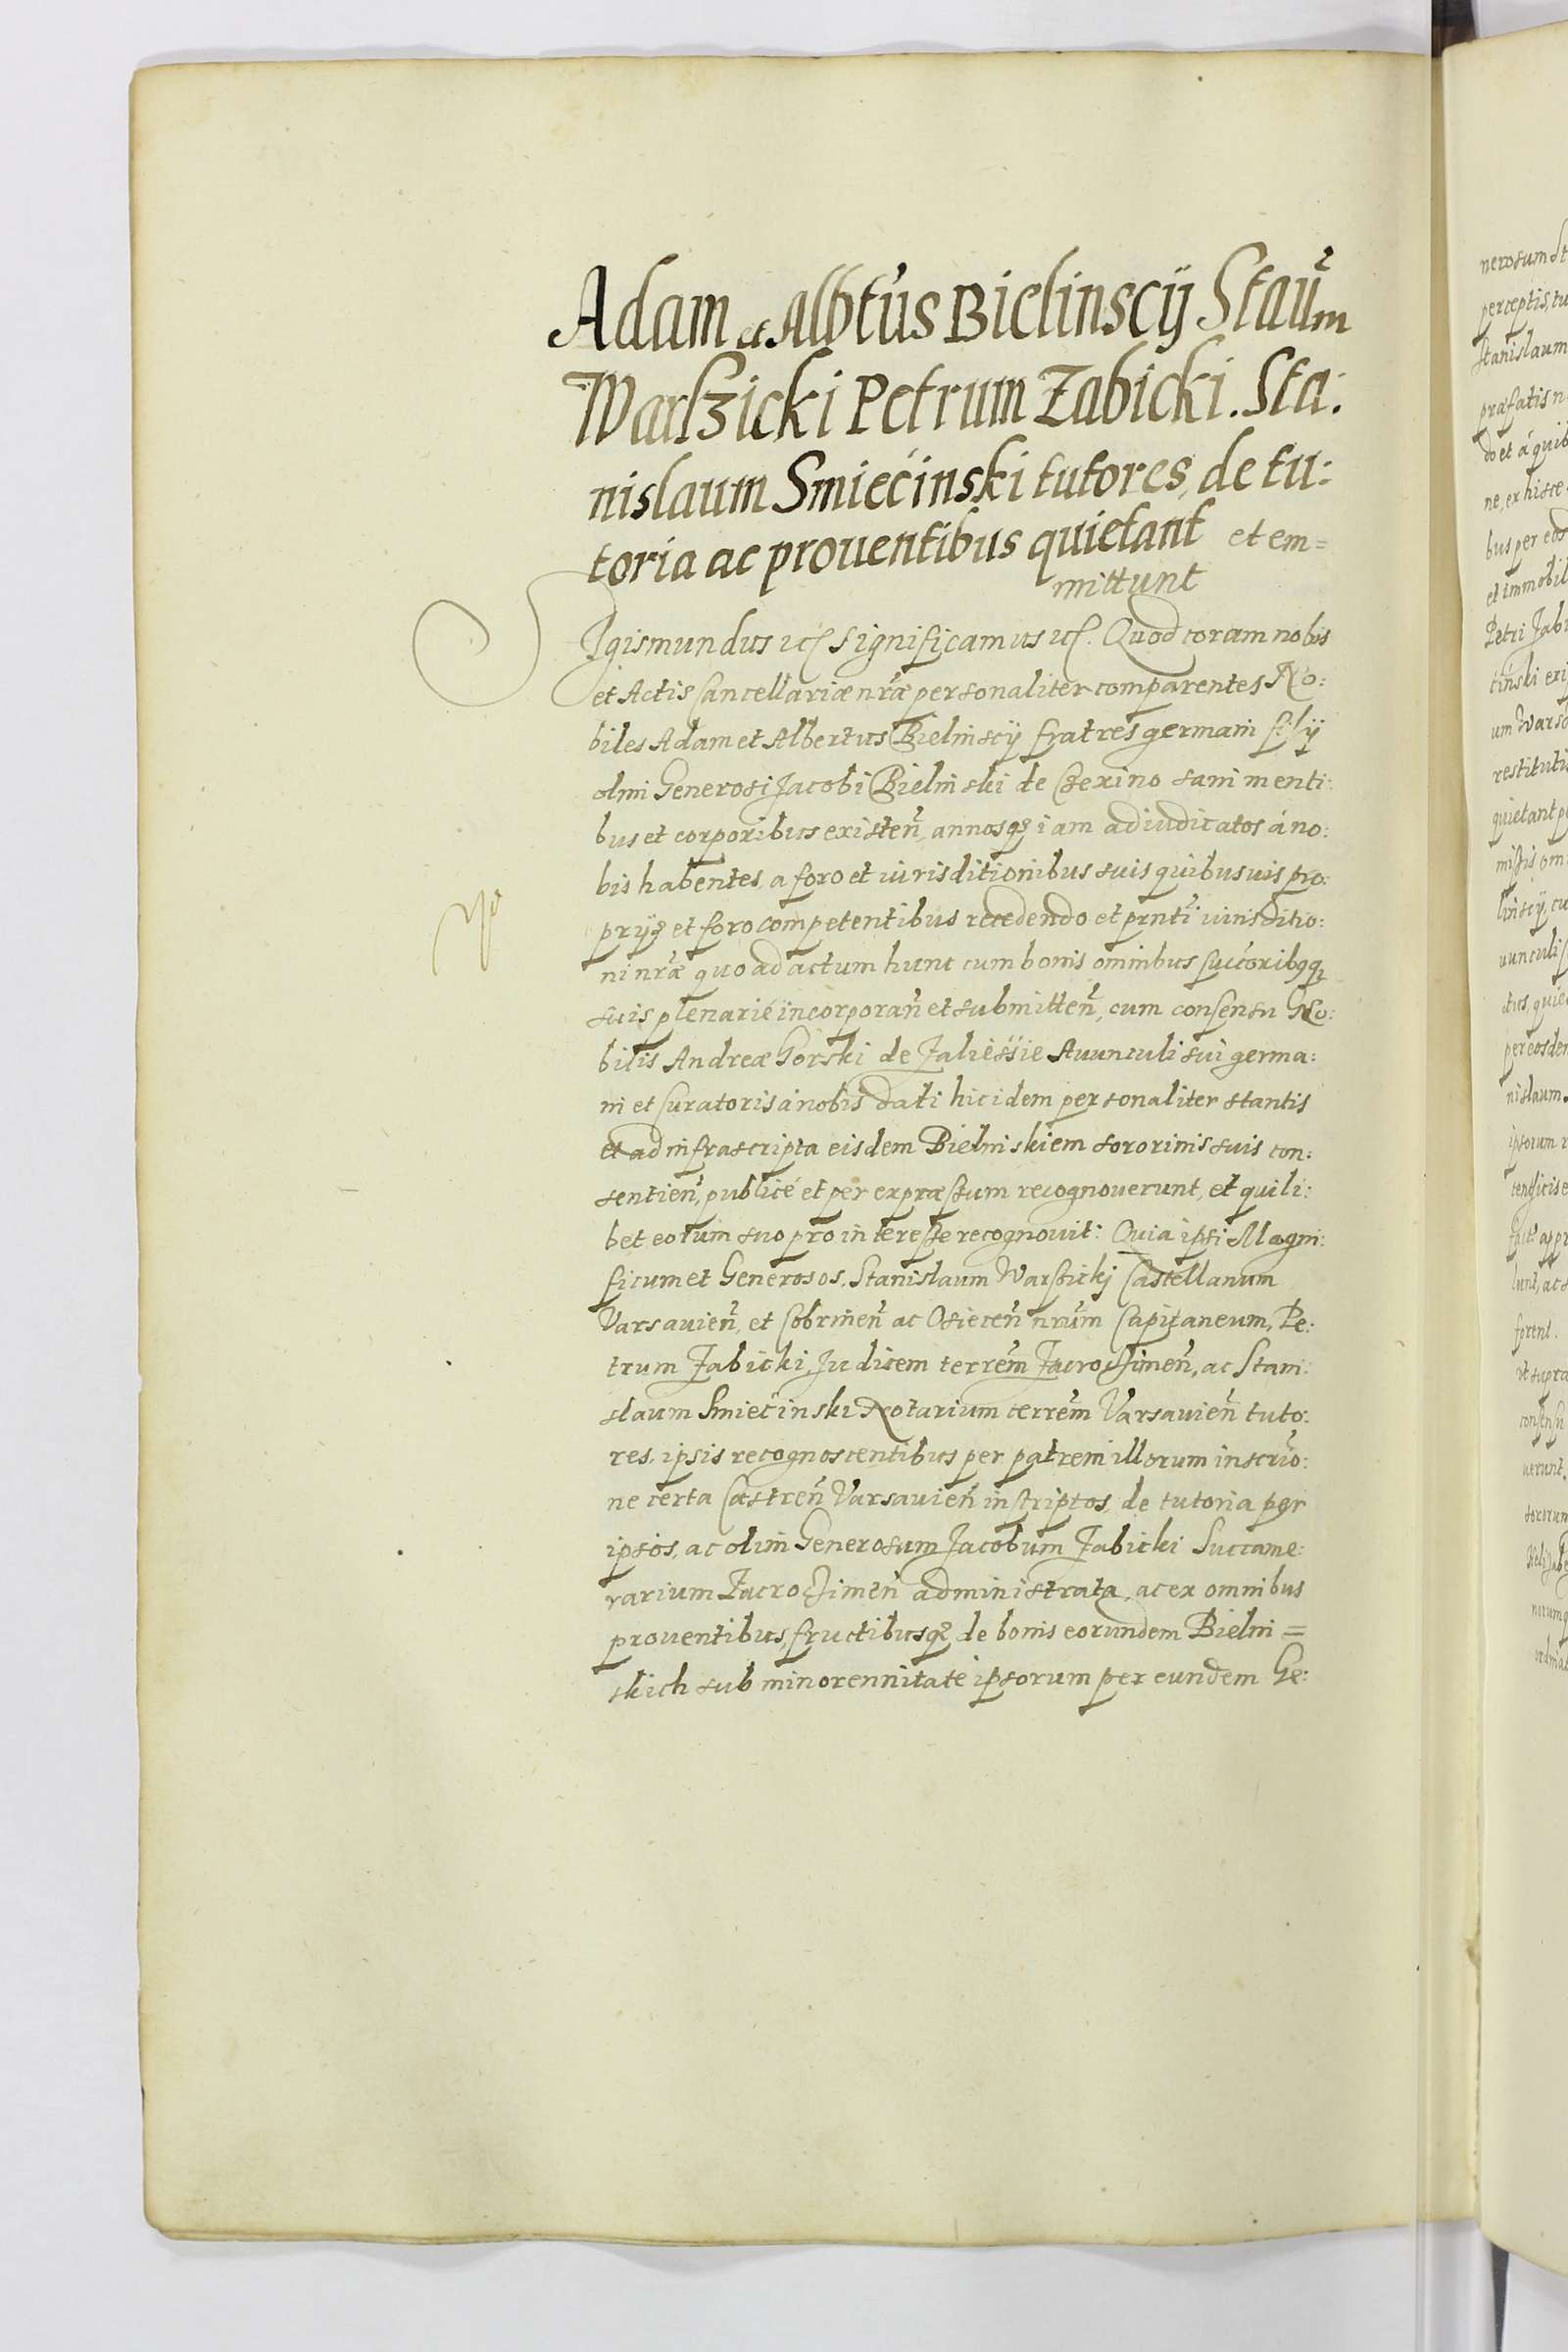 Adam et Albtus Bielinscÿ Staum
Warszicki Petrum Zabicki. Sta:
nislaum Smiecinski tutores, de tu:
toria ac prouentibus quietant et em=
mittunt
Sigismundus etc Significamus etc. Quod coram nobis
et Actis Cancellariæ nr̃æ personaliter comparentes No:
biles Adam et Albertus Bielinscÿ fratres germani filÿ
olim Generosi Jacobi Bielinski de Czexino sani menti:
bus et corporibus existen̄, annosq₃ iam adiudicatos á no:
bis habentes, a foro et iurisditionibus suis quibusuis pro:
prÿs et foro competentibus recedendo et prnti iurisditio:
ni nr̃æ quo ad actum hunc cum bonis omnibus succoribqq₃
suis plenarié incorporan̄ et submitten̄, cum consensu No:
bilis Andreæ Gorski de Zaliessie Auunculi sui germa:
ni et Curatoris á nobis dati hic idem personaliter stantis
et ad infrascripta eisdem Bielinskiem sororinis suis con:
sentien̄, publicé et per expræssum recognouerunt, et quili:
bet eorum suo pro interesse recognouit: Quia ipsi Magni:
ficum et Generosos, Stanislaum Warszickj Castellanum
Varsauien̄, et Cobrinen̄ ac Osiecen̄ nrūm Capitaneum, Pe:
trum Zabicki Judicem terrem̄ Zacroczimen̄, ac Stani:
slaum Smiecinski Notarium terrem̄ Varsauien̄ tuto:
res, ipsis recognoscentibus per patrem illorum inscrio:
ne certa Castren̄ Varsauien̄ inscriptos, de tutoria per
ipsos, ac olim Generosum Jacobum Zabicki Succame:
rarium Zacroczimen̄ administrata, ac ex omnibus
prouentibus, fructibusq₃ de bonis eorundem Bielin=
skich sub minorennitate ipsorum per eundem Ge: